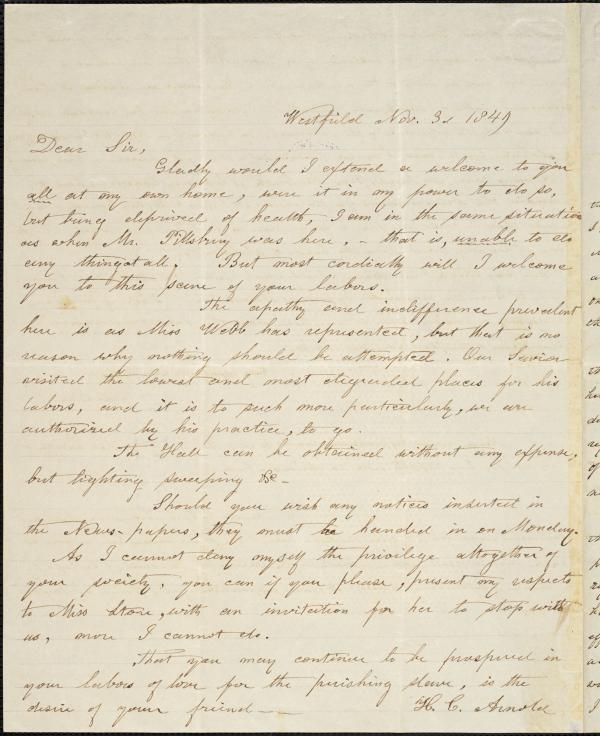 Westfield Nov. 3d 1849
Dear Sir,
Gladly would I extend a welcome to you
all at my own home, were it in my power to do so,
but being deprived of health, I am in the same situation
as when Mr. Pillsbury was here, - that is, unable to do
any thing at all. But most cordially will I welcome
you to this scene of your labors.
The apathy and indifference prevalent
here is as Miss Webb has represented, but that is no
reason why nothing should be attempted. Our Savior
visited the lowest and most degraded places for his
labors, and it is to such more particularly, we are
authorized by his practice, to go.
The Hall can be obtained without any expense,
but lighting sweeping &c -
Should you wish any notices inserted in
the News-papers, they must be handed in on Monday.
As I cannot deny myself the privilege altogether of
your society, you can if you please, present my respects
to Miss Stone, with an invitation for her to stop with
us, more I cannot do.
That you may continue to be prospered in
your labors of love for the perishing slave, is the
desire of your friend - H. C. Arnold